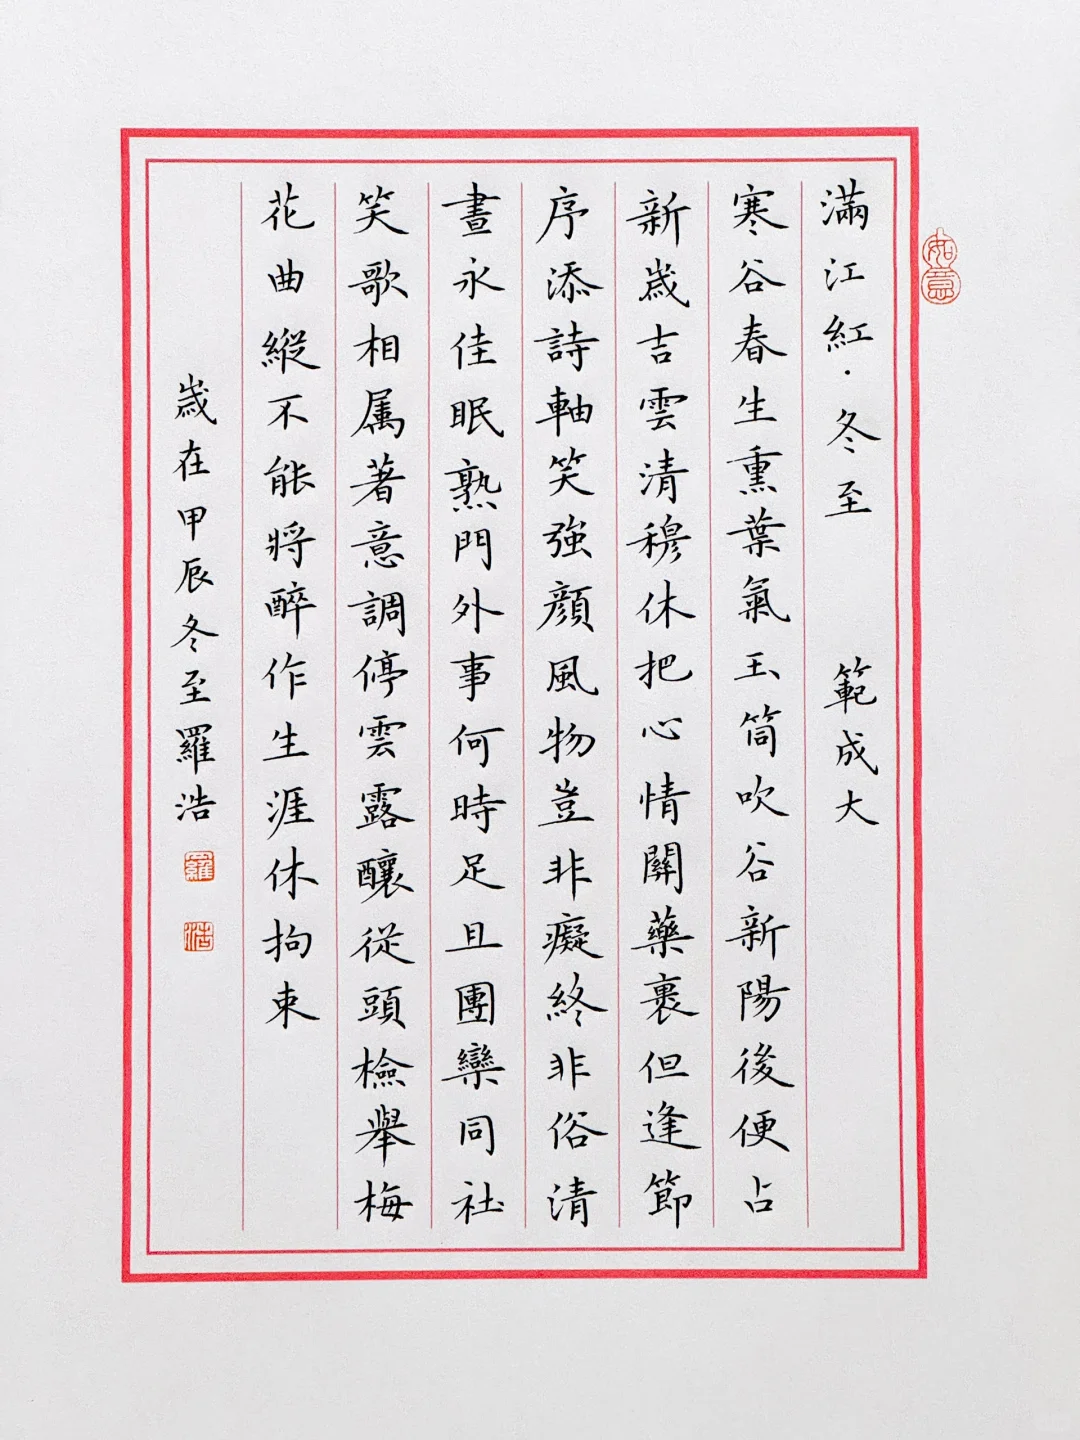 滿江紅·冬至 範成大
寒谷春生熏葉氣玉筒吹谷新陽後便占
新歲吉雲清穆休把心情關藥裹但逢節
序添詩軸笑強顏風物豈非癡終非俗清
晝永佳眠熟門外事何時足且團欒同社
笑歌相属著意調停雲露釀從頭檢舉梅
花曲縱不能將醉作生涯休拘束
歲在甲辰冬至羅浩
如意
羅
浩